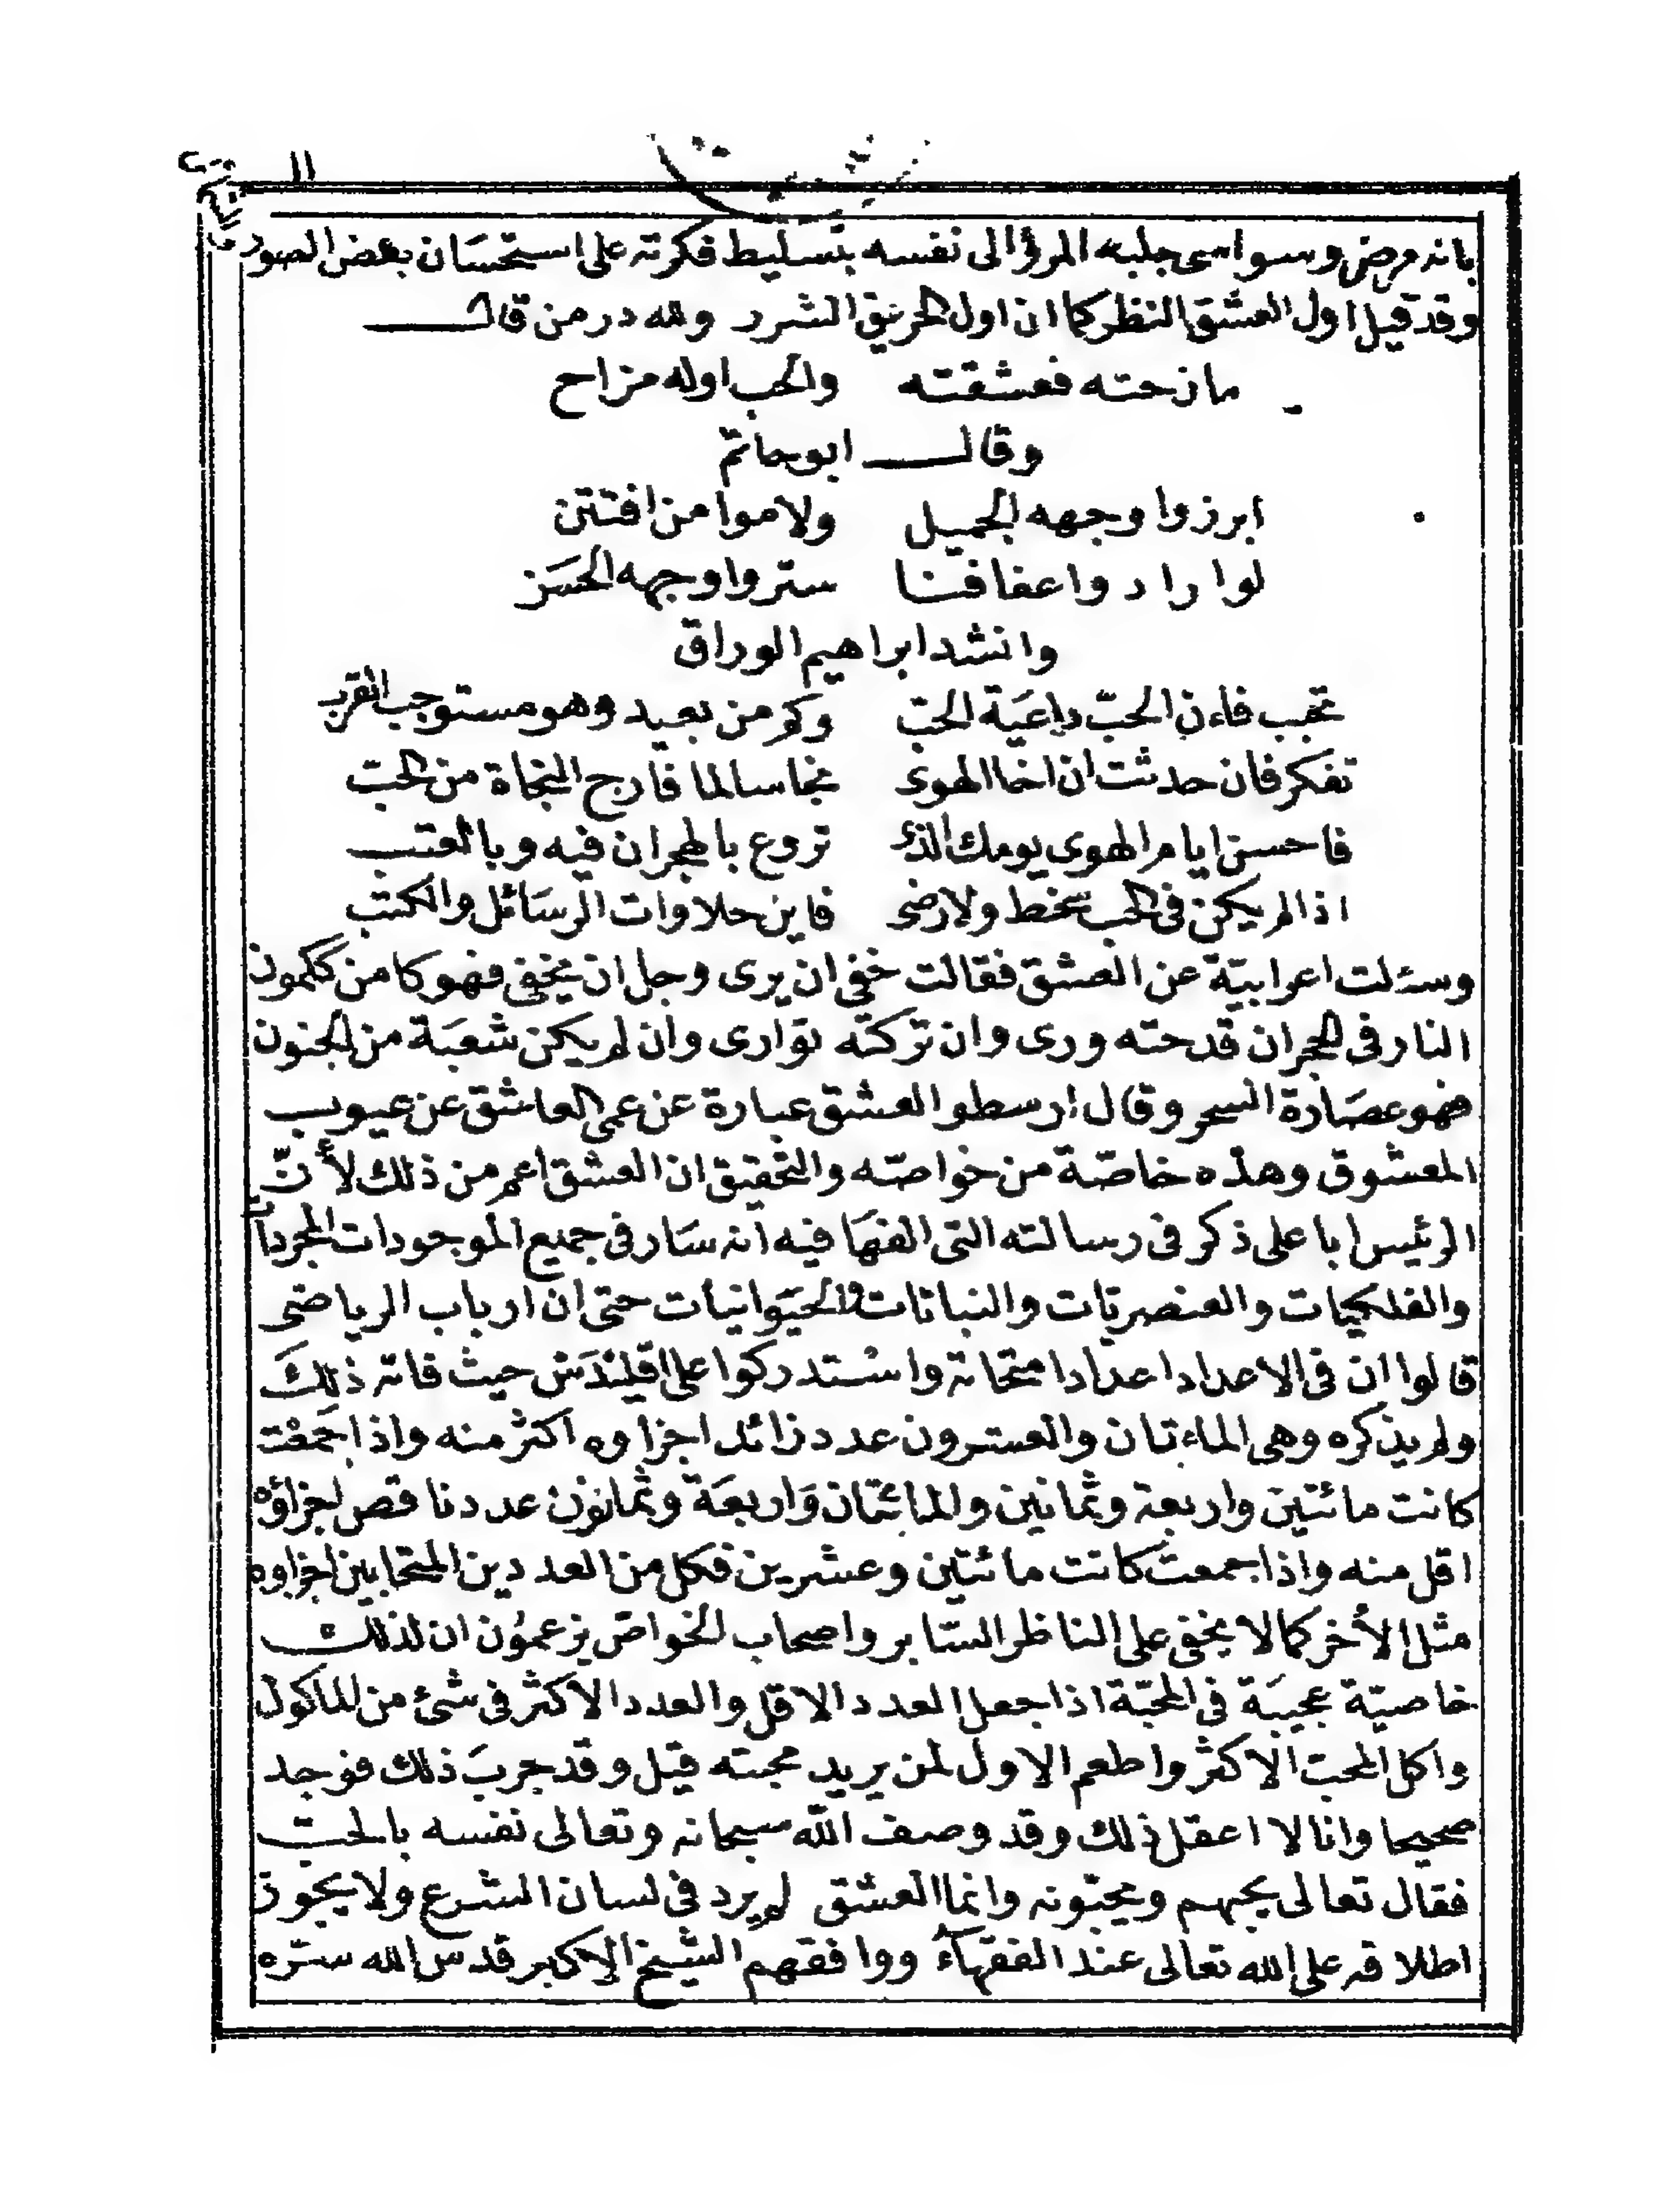 بانه مرض وسواسى جلبه المرؤ الى نفسه بتسليط فكرته على استحسَان بعض الصور
وقد قيل اول العشق النظر كما ان اول الحريق الشرر ولله در من قال
مازحته فعشقته والحب اوله مزاح
وقال ابو حاتم
ابرزوا وجهه الجميل ولاموا من افتتن
لو ارادوا عفافنا ستروا وجهه الحسَن
وانشد ابراهيم الوراق
تحبب فاءن الحبّ داعيَة الحبّ وكم من بعيد وهو مستوجب القرب
تفكر فان حدثت ان اخا الهوى نجا سالما فارج النجاة من الحبّ
فاحسن ايام الهوى يومك الذى تروع بالهجران فيه وبالعتب
اذا لم يكن فى الحب سخط ولا رضى فاين حلاوات الرسَائل والكتب
وسئلت اعرابيّة عن العشق فقالت خفى ان يرى وجل ان يخفى فهو كامن ككمون
النار فى الحجر ان قدحته ورى وان تركته توارى وان لم يكن شعبَة من الجنون
فهو عصَارة السحر وقال ارسطو العشق عبارة عن عمى العاشق عن عيوب
المعشوق وهذه خاصّة من خواصّه والتحقيق ان العشق اعم من ذلك لأنّ
الرئيس ابا على ذكر فى رسالته التى الفهَا فيه انه سَار فى جميع الموجودات المجردات
والفلكيات والعنصريات والنباتات والحيَوانيات حتى ان ارباب الرياضى
قالوا ان فى الاعداد اعدادا متحابة واستدركوا على اقليدَس حيث فاته ذلكَ
ولم يذكره وهى الماءتان والعشرون عدد زائد اجزاوه اكثر منه واذا جَمعْت
كانت مائتين واربعة وثمانين والمائتان وَاربعَة وثمانون عدد ناقص اجزاؤه
اقل منه واذا جمعت كانت مائتين وعشرين فكل من العددين المتحابين اجزاوه
مثل الأخر كما لا يخفى على الناظر السّابر واصحاب الخواصّ يزعمُون ان لذلك
خاصيّة عجيبَة فى المحبّة اذا جعل العدد الاقل والعدد الاكثر فى شئ من الماكول
واكل المحبّ الاكثر واطعم الاول لمن يريد محبته قيل وقد جربَ ذلك فوجد
صحيحا وانا لا اعقل ذلك وقد وصف اللّه سبحانه وتعالى نفسه بالحبّ
فقال تعالى يحبهم ويحبّونه وانما العشق لم يرد فى لسان الشرع ولا يجوز
اطلاقه على الله تعالى عند الفقهآء ووافقهم الشيخ الاكبر قدس الله سرّه